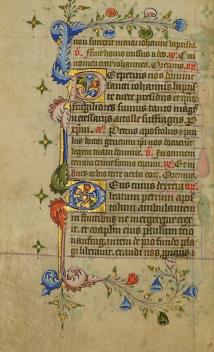 non surrexit maior iohanne baptista.
Fuit homo missus a deo. Cui
nomen erat iohannes. Oremus.
Perpetuis nos domine
sancti iohannis bapti
ste tuere presidiis et
fragiliores sumus tanto magis
necessariis attolle suffragiis. P
xpm. Petrus apostolus et pau
lus doctor gencium ipsi nos docue
legem tuam domine. In omnem
terram exiuit sonus eorum. Et in
fines orbis terre verba eor. Oremus.
Deus cuius dextera
beatum petrum aposto
lum ambulantem
in fluctibus ne mergeretur erex
it et eius paulum tercio
naufragantem de profundo pela
gi liberauit. exaudi nos propicius